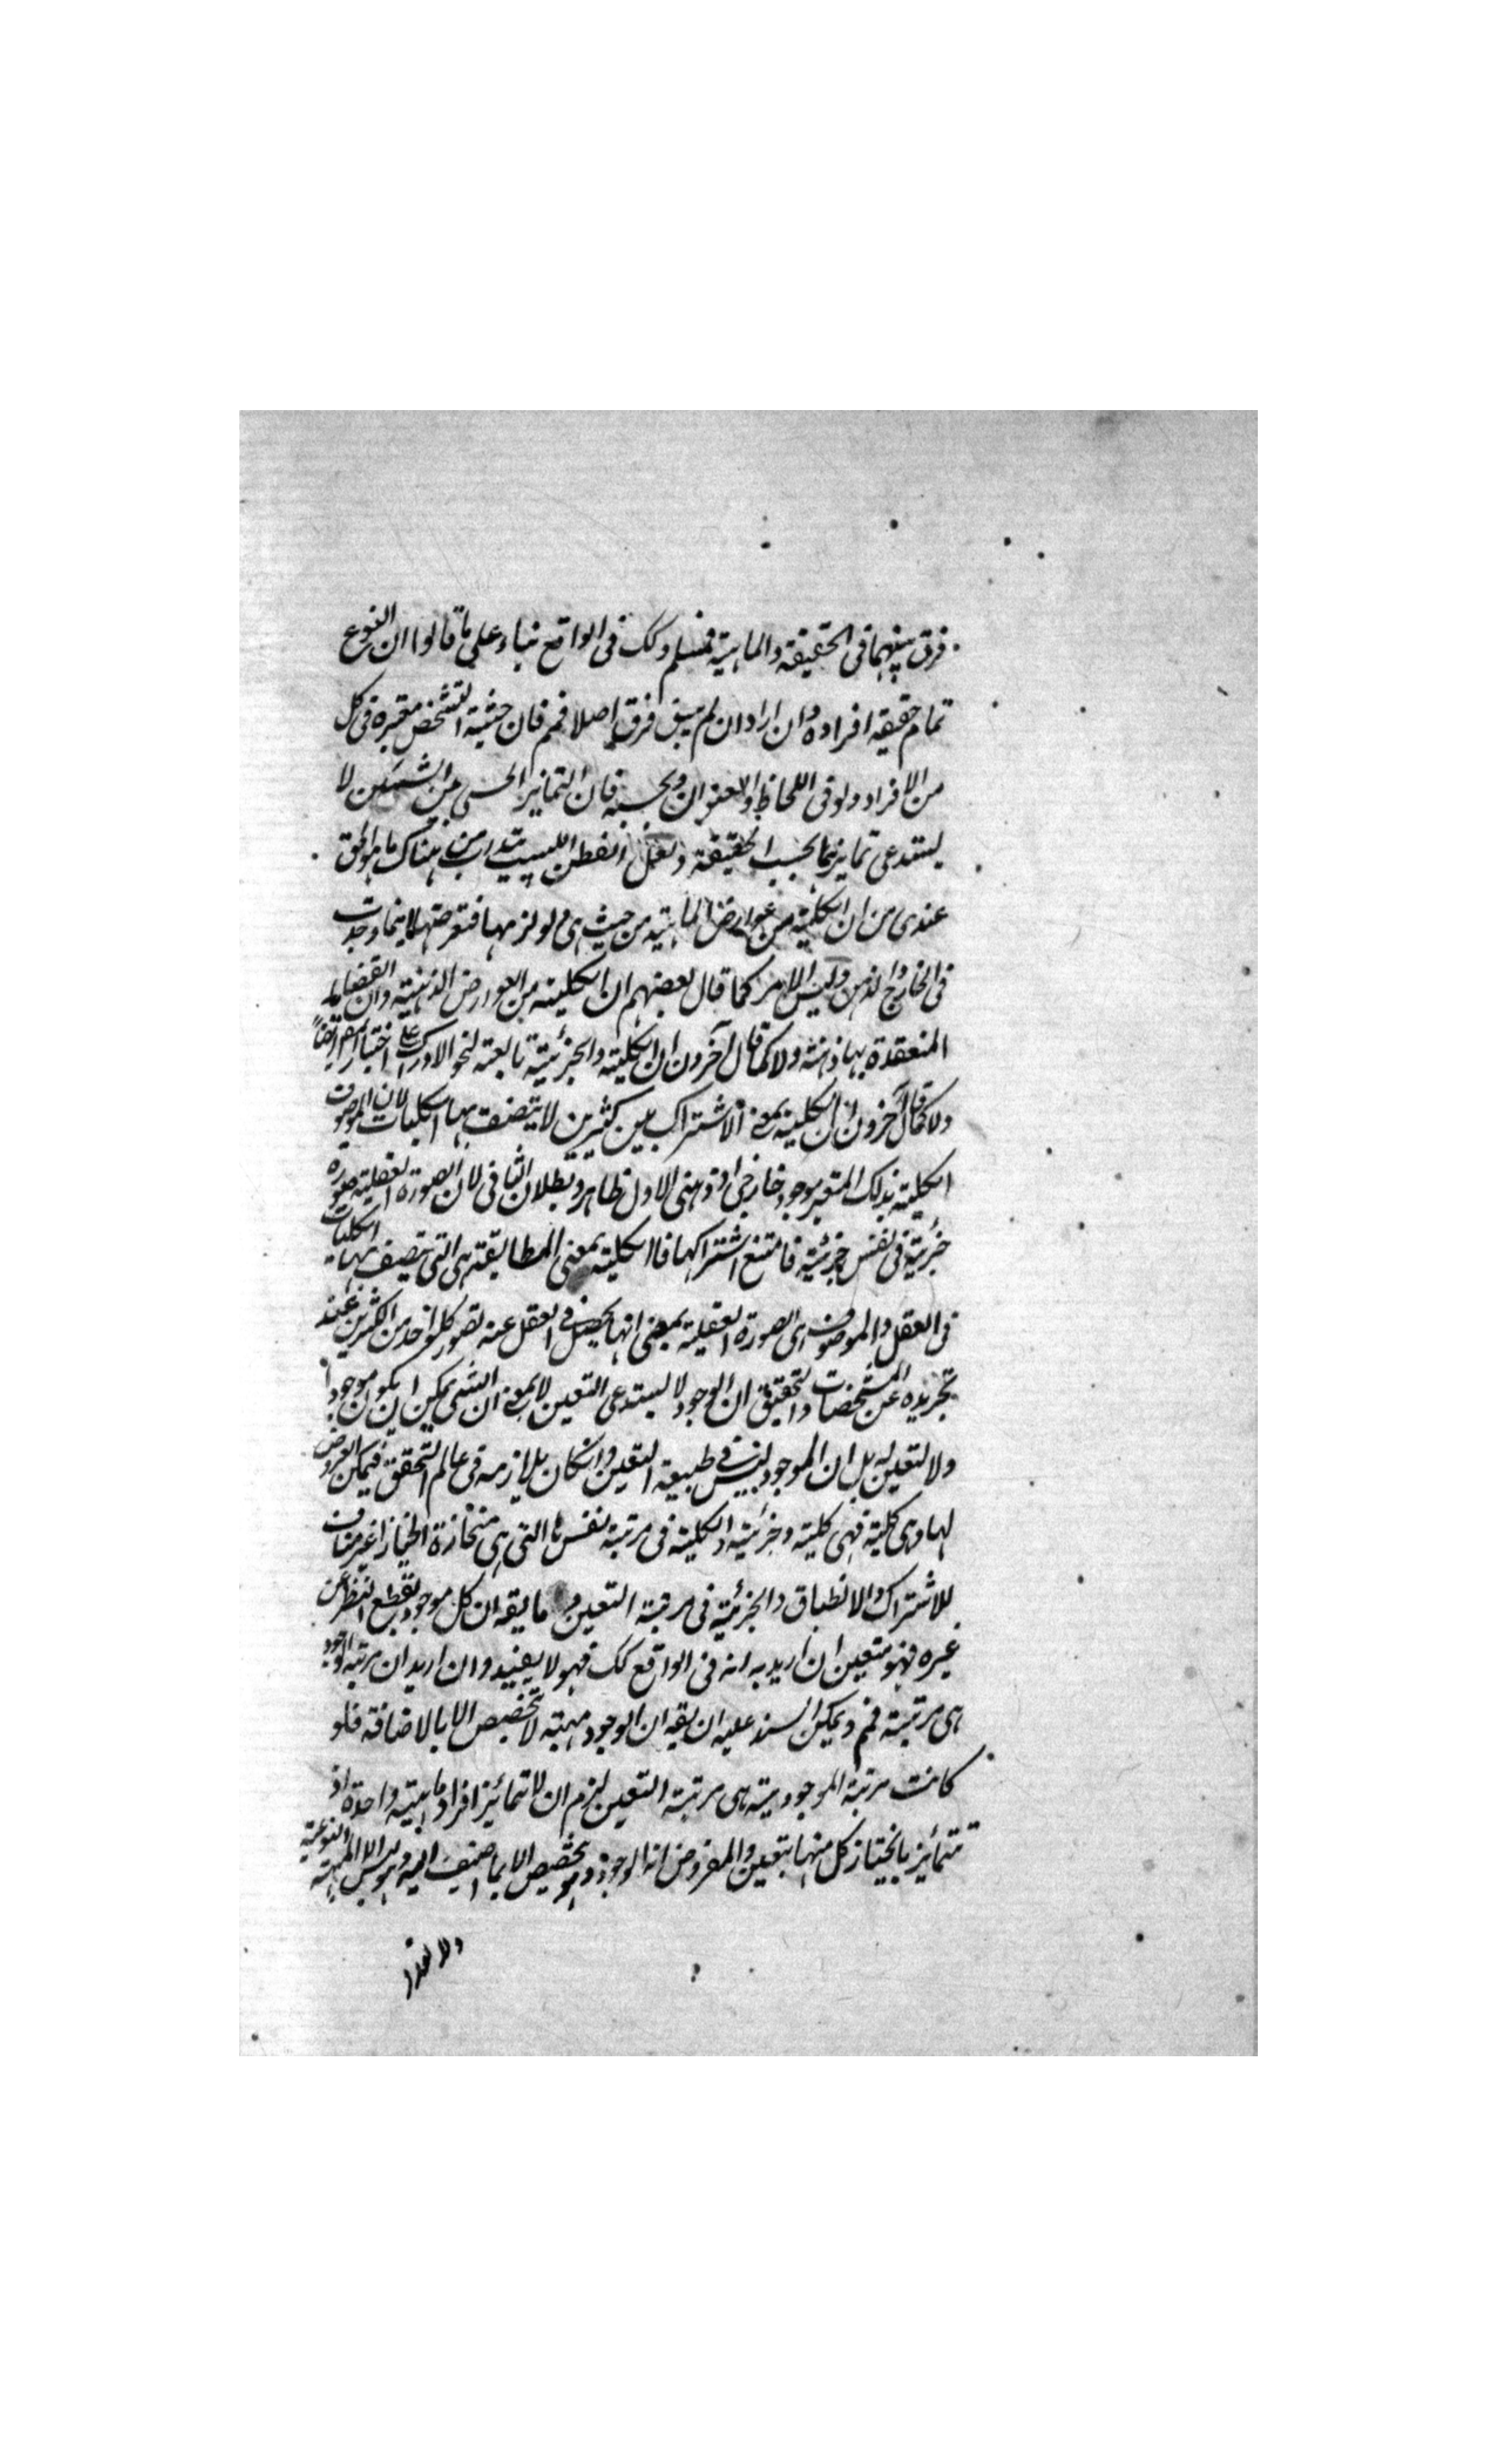 فرق بينهما فى الحقيقة والماهية فمسلم وكك فى الواقع بناء على ما قالوا ان النوع
تمام حقيقة افراده وان اراد ان لم يبق فرق اصلا فمم فان حيثية التشخص معتبرة فى كل
من الافراد ولو فى اللحاظ والعنوان وبحسبه فان التمائز الحسى بين الشيئين لا
يستدعى تمايزهما بحسب الحقيقة ولعل الفطن اللبيب يتدرب من هناك ما هو الحق
عندى من ان الكلية من عوارض الماهية من حيث هى ولوازمها فتعرضها اينما وجدت
فى الخارج او الذهن وليس الامر كما قال بعضهم ان الكلية من العوارض الذهنية وان القضايا
المنعقدة بها ذهنية ولا كما قال آخرون ان الكلية والجزئية تابعة لنحو الادراك
ولا كما قال آخرون ان الكلية بمعنى الاشتراك بين كثيرين لا يتصف بها الكليات لان الموصوف
الكلية بذلك المعتبر موجود خارجى او ذهنى الاول ظاهر وبطلان الثانى لان الصورة العقلية صورة
جزئية فى نفس جزئية فامتنع اشتراكها فاالكلية بمعنى المطابقة هى التى يتصف بها الكليات
فى العقل والموصوف هى الصورة العقلية بمعنى انها يحصل فى العقل عنه تصور كل واحد من الكثيرين عند
تجريده عن المشخصات والتحقيق ان الوجود لا يستدعى التعين لا بمعنى ان الشى يمكن ان يكون موجودا
ولا لتعين له بل ان الموجود ليس فى طبيعة التعين وانكان يلازمه فى عالم التحقق فيمكن العروض
لها وهى كلية فهى كلية وجزئية والكلية فى مرتبة نفسها التى هى منحازة انحيازا غير مناف
للاشتراك والانطباق والجزئية فى مرتبة التعين وما يقه ان كل موجود بقطع النظر عن
غيره فهو متعين ان اريد به انه فى الواقع كك فهو لا يفيد وان اريد ان مرتبة الوجود
هى مرتبته فمم ويمكن السند عليه ان يقه ان الوجود مهيته لا تخصيص الا بالاضافة فلو
كانت مرتبة الموجودية هى مرتبة التعين لزم ان لا تتمائز افراد ماهية واحدة اذ
تتمائز بانحياز كل منها بتعين والمفروض انه الوجود وهو تخصيص الا بما اضيف اليه وليس الا المهية النوعية